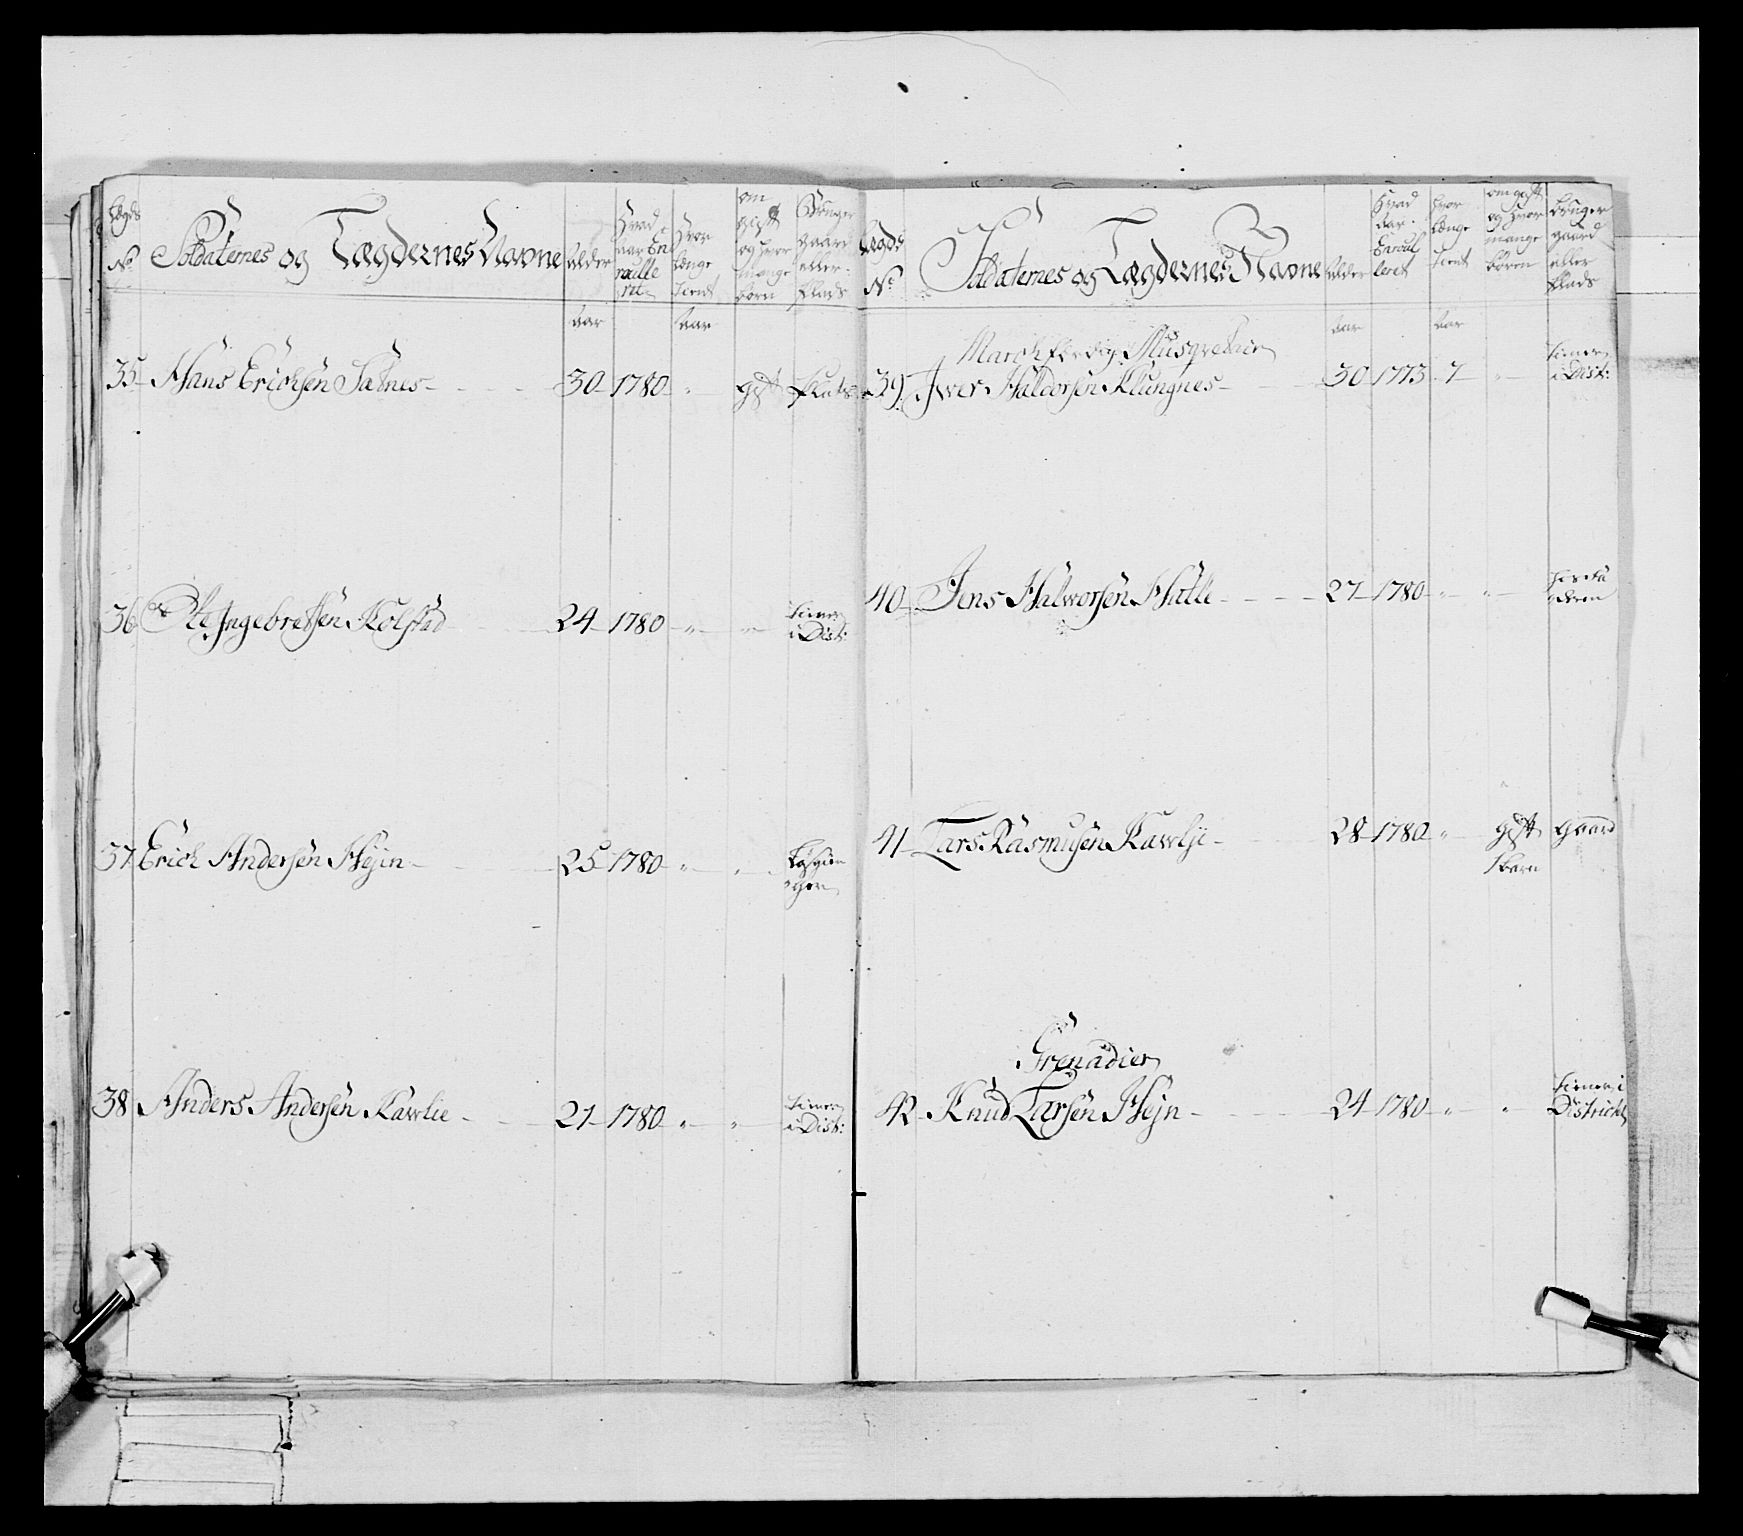 Lægds No Soldaternes og Lægdernes Navne Alder Hvad aar Enroulleret Hvor længe tient om gift og hvor mange børn Bruger gaard eller Plads
Aar Aar
35 Hans Erichsen Sætnes 30 1780 " gift Plats
36 Ole Ingebretsen Kolstad 24 1780 " " tiener i Dist:
37 Erich Andersen Hejin 25 1780 " "
38 Anders Andersen Kavlie 21 1780 " " tiener i Dist:
Lægds No Soldaternes og Lægdernes Navne Alder Hvad Aar Enroulleret hvor længe tient om gift og hvor mange børen bruger gaard eller Plads
Aar Aar
Marchfærdig Musqvetair
39 Iver Haldorsen Klungnes 30 1773 7 " tiener i Dist:
40 Jens Halvorsen Hatle 27 1780 " "
41 Lars Rasmusen Kavlje 28 1780 " gift gaard
1 barn
Grenadier
42 Knud Larsen Hejn 24 1780 " " tiener i District